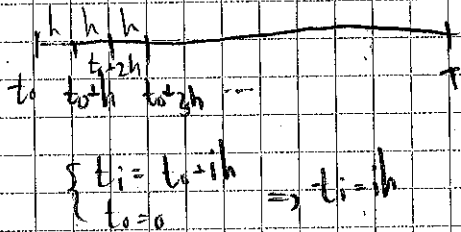 h h h
t₀+2h
t₀ t₀+h t₀+3h ... T
{ tᵢ = t₀+ih
{ t₀=0 => tᵢ=ih